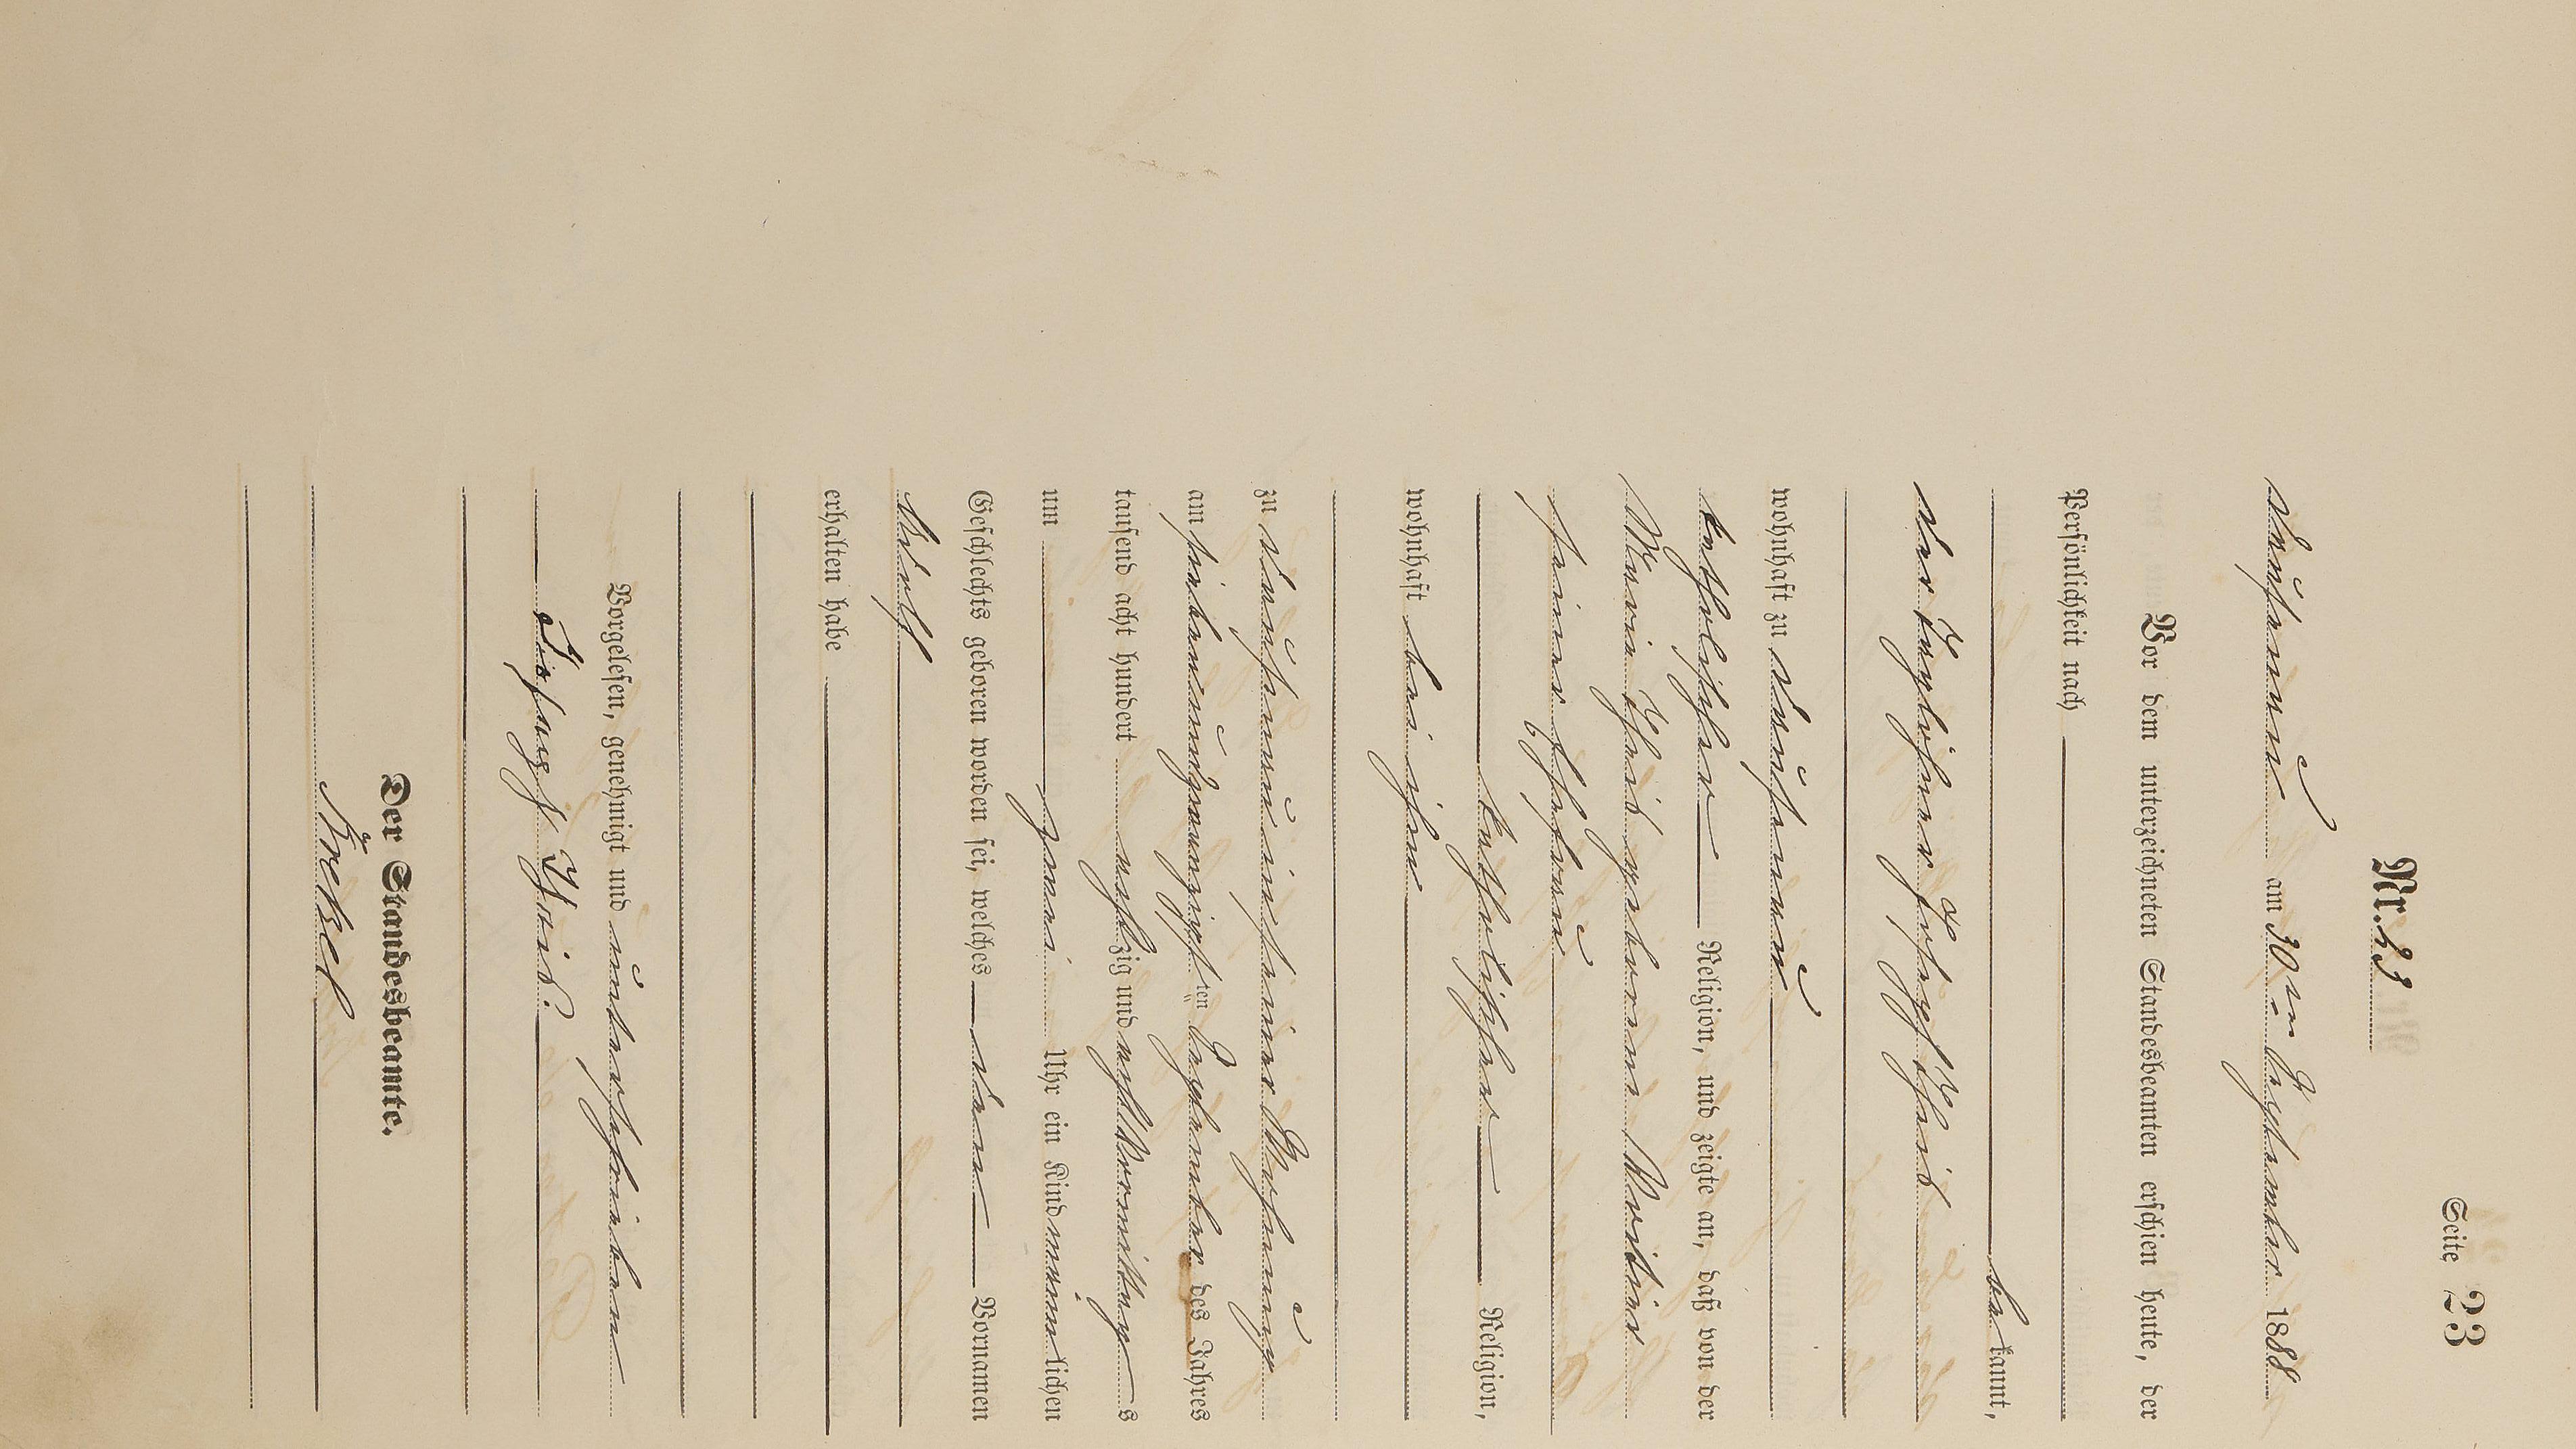 Seite 23
Nr. 23
am 30ten September 1888
Vor dem unterzeichneten Standesbeamten erschien heute, der
Persönlichkeit nach
bekannt,
der Taglöhner Joseph Theis
wohnhaft zu
katholischer Religion, und zeigte an, daß von der
Maria Theis geborene
seiner Ehefrau
katholischer Religion,
wohnhaft bei ihm
zu in seiner Wohnung
am siebenundzwanzigsten September des Jahres
tausend acht hundert achtzig und acht Vormittags
um zwei Uhr ein Kind männlichen
Geschlechts geboren worden sei, welches den Vornamen
Adolf
erhalten habe
Vorgelesen, genehmigt und unterschrieben
Joseph Theis.
Der Standesbeamte.
Krekel